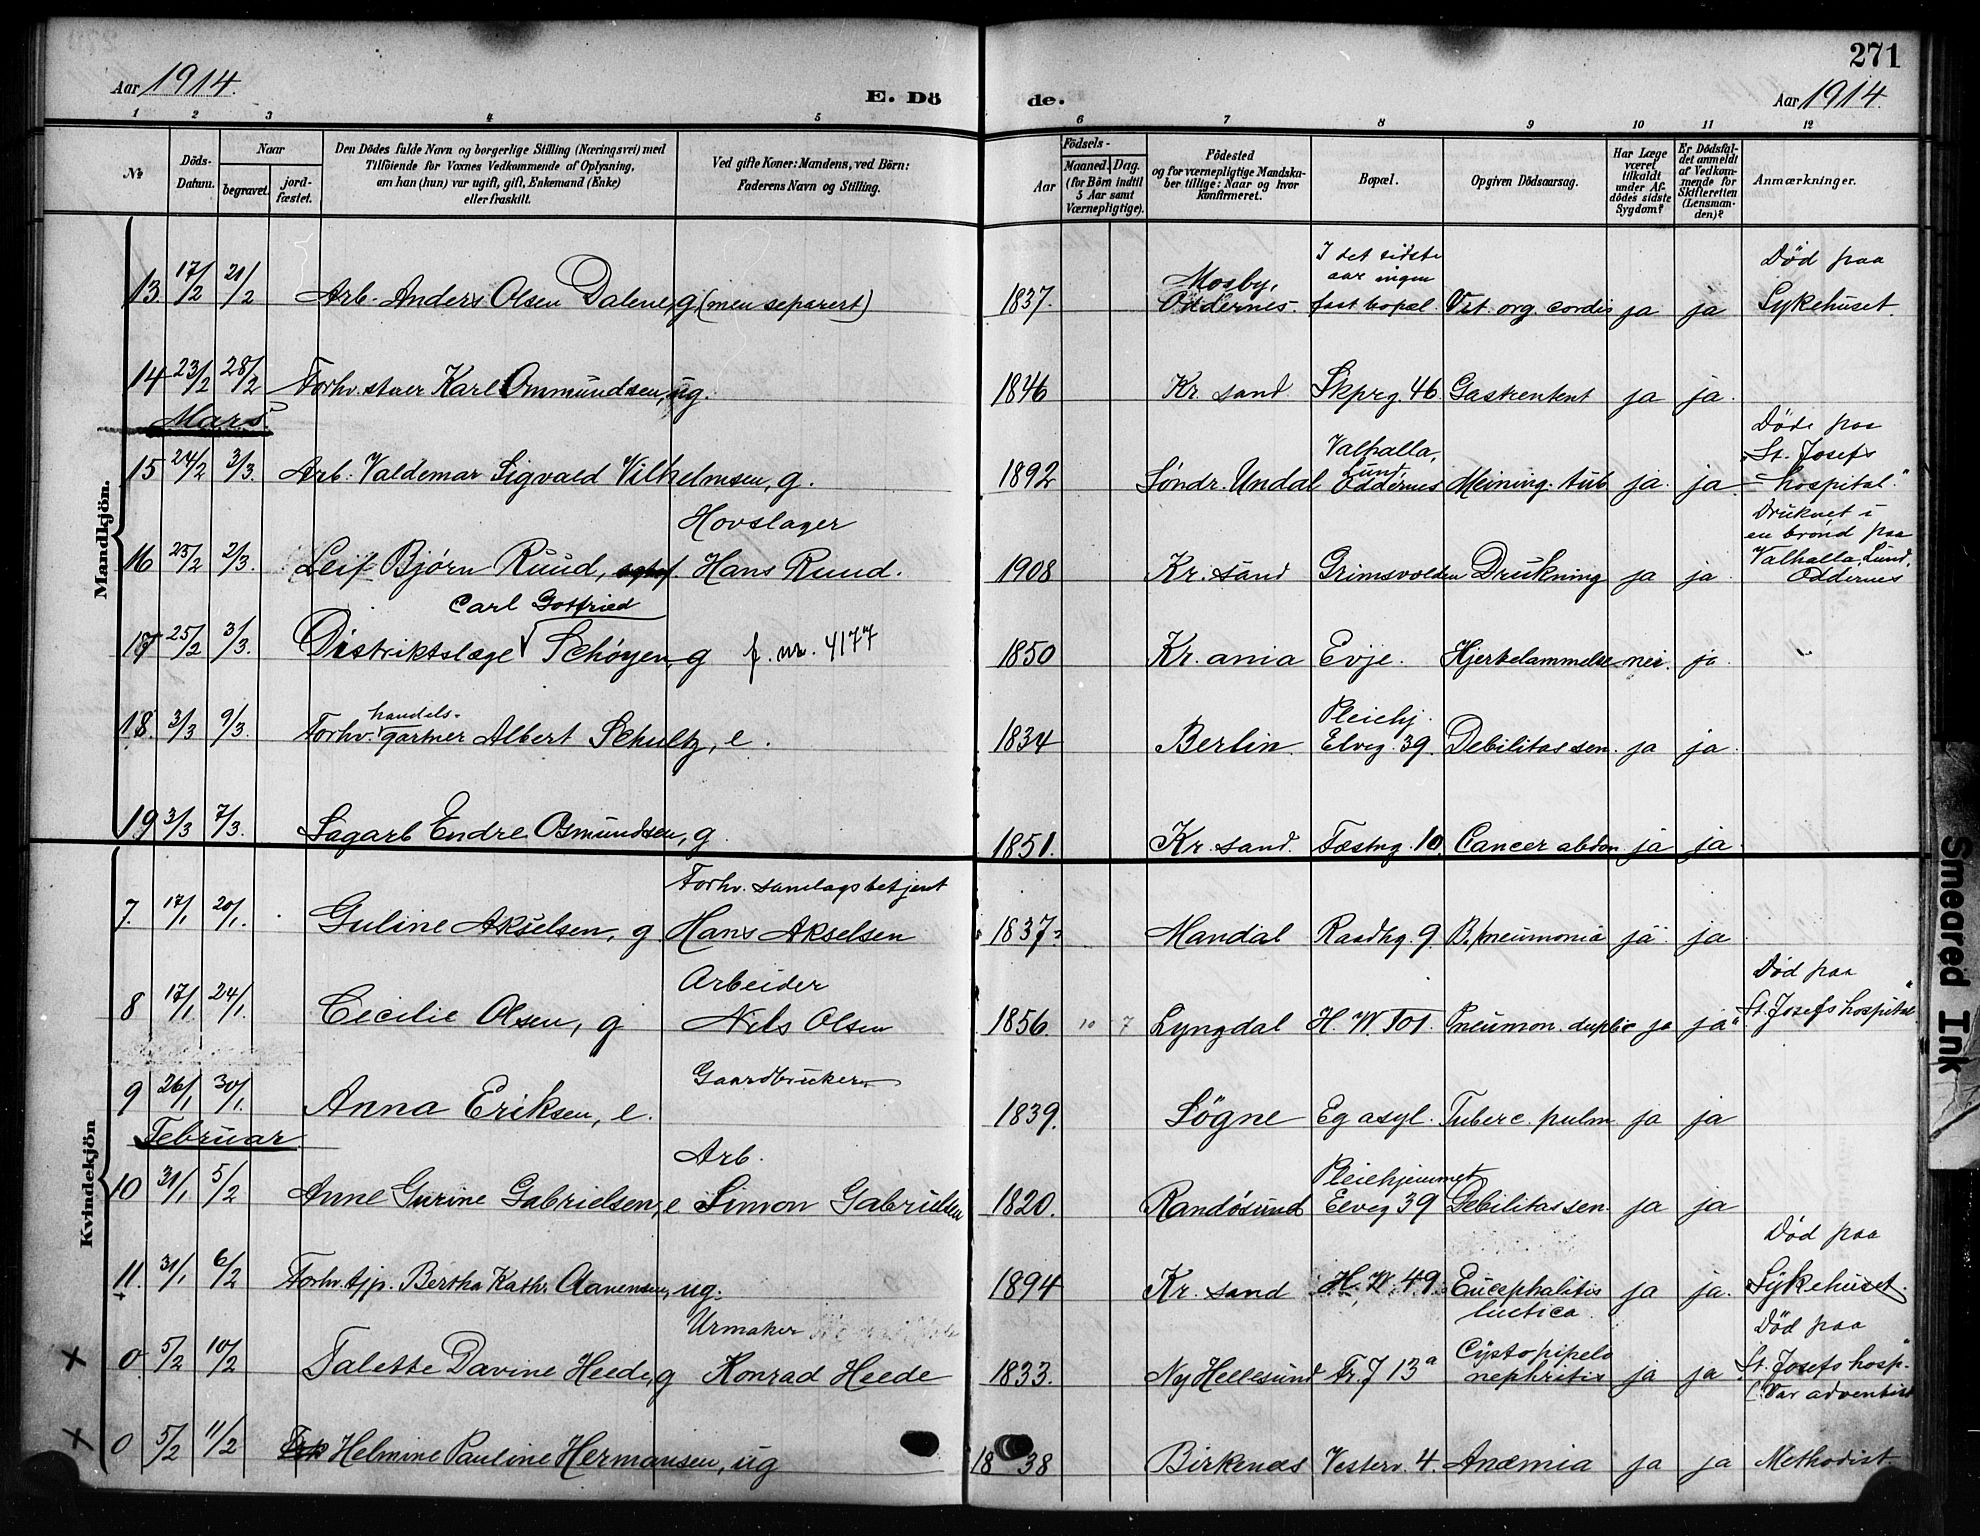 271
Aar 1914.
E. Dö de.
Aar 1914.
1 2 3 4 5 6 7 8 9 10 11 12
No
Döds-Datum.
Naar
begravet.
jord-fæstet.
Den Dödes fulde Navn og borgerlige Stilling (Næringsvei) med
Tilföiende for Voxnes Vedkommende af Oplysning,
om han (hun) var ugift, gift, Enkemand (Enke)
eller fraskilt.
Ved gifte Koner: Mandens, ved Börn:
Faderens Navn og Stilling.
Aar
Födsels-
Maaned. Dag.
(for Börn indtil
5 Aar samt
Værnepligtige).
Födested
og for værnepligtige Mandska-
ber tillige: Naar og hvor
konfirmeret.
Bopæl.
Opgiven Dödsaarsag.
Har Læge
været
tilkaldt
under Af-
dödes sidste
Sygdom?
Er Dödsfal-
det anmeldt
af Vedkom-
mende for
Skifteretten
(Lensman-
den)?
Anmærkninger.
Mandkjön.
13 17/2 21/2 Arb. Anders Olsen Dalene, g (men separert) 1837. Mosby, Oddernes. I det sidste aar ingen fast bopæl. Vit. org. cordis ja ja Død paa Sykehuset.
14 23/2 28/2 Forhv. stuer Karl Ommundsen, ug. 1846 Kr. sand Skprg. 46 Gastrentent ja ja.
Mars.
15 24/2 3/3. Arb. Valdemar Sigvald Vilhelmsen, g. 1892 Søndr. Undal Valhalla, Lund, Oddernes Meining. tub ja. ja Døde paa "St. Josefs hospital."
16 25/2 2/3. Leif Bjørn Ruud, Hovslager Hans Ruud. 1908 Kr. sand Grimsvolden Drukning ja ja Druknet i en brønd paa Valhalla, Lund, Oddernes
17 25/2 3/3. Distriktslæge Carl Gotfried Schøyen, g f. nr. 4177 1850 Kr. ania Evje. Hjertelammelse nei. ja.
18. 3/3 9/3. Forhv. handels-gartner Albert Schultz, e. 1834 Berlin. Pleiehj. Elveg. 39. Debilitas sen. ja ja.
19 3/3 7/3. Sagarb Endre Osmundsen, g. 1851. Kr. sand. Fæstng. 10. Cancer abdom. ja ja.
Kvindekjön
7. 17/1 20/1. Guline Akselsen, g. Forhv. samlagsbetjent Hans Akselsen 1837 Mandal Raadhg. 9. B. pneumonia ja ja.
8 17/1 24/1. Cecilie Olsen, g Arbeider Nils Olsen 1856. 10 7 Lyngdal H. W. 101. Pneumon. duplic ja ja Død paa "St. Josefs hospital"
9 26/1 30/1. Anna Eriksen, e. Gaardbruker 1839. Søgne Eg asyl. Tuberc. pulm ja ja
Februar
10 31/1 5/2 Anne Gurine Gabrielsen, e Arb. Simon Gabrielsen 1820. Randøsund Pleiehjemmet Elveg 39 Debilitas sen. ja ja
11. 31/1 6/2 Forhv. tjp. Bertha Kathr. Aanensen, ug. 1894 Kr. sand H. W. 49. Encephalitis luetica ja ja. Død paa Sykehuset.
x 0. 5/2 10/2 Talette Davine Heede, g Urmaker Konrad Heede 1833. Ny Hellesund Tr. J 13a Cystopipelo nephritis ja ja Død paa "St. Josefs hosp." (Var adventist
x 0 5/2 11/2 Helmine Pauline Hermansen, ug 1838 Birkenæs Vesterv. 4. Anæmia ja ja Methodist.
Smeared Ink